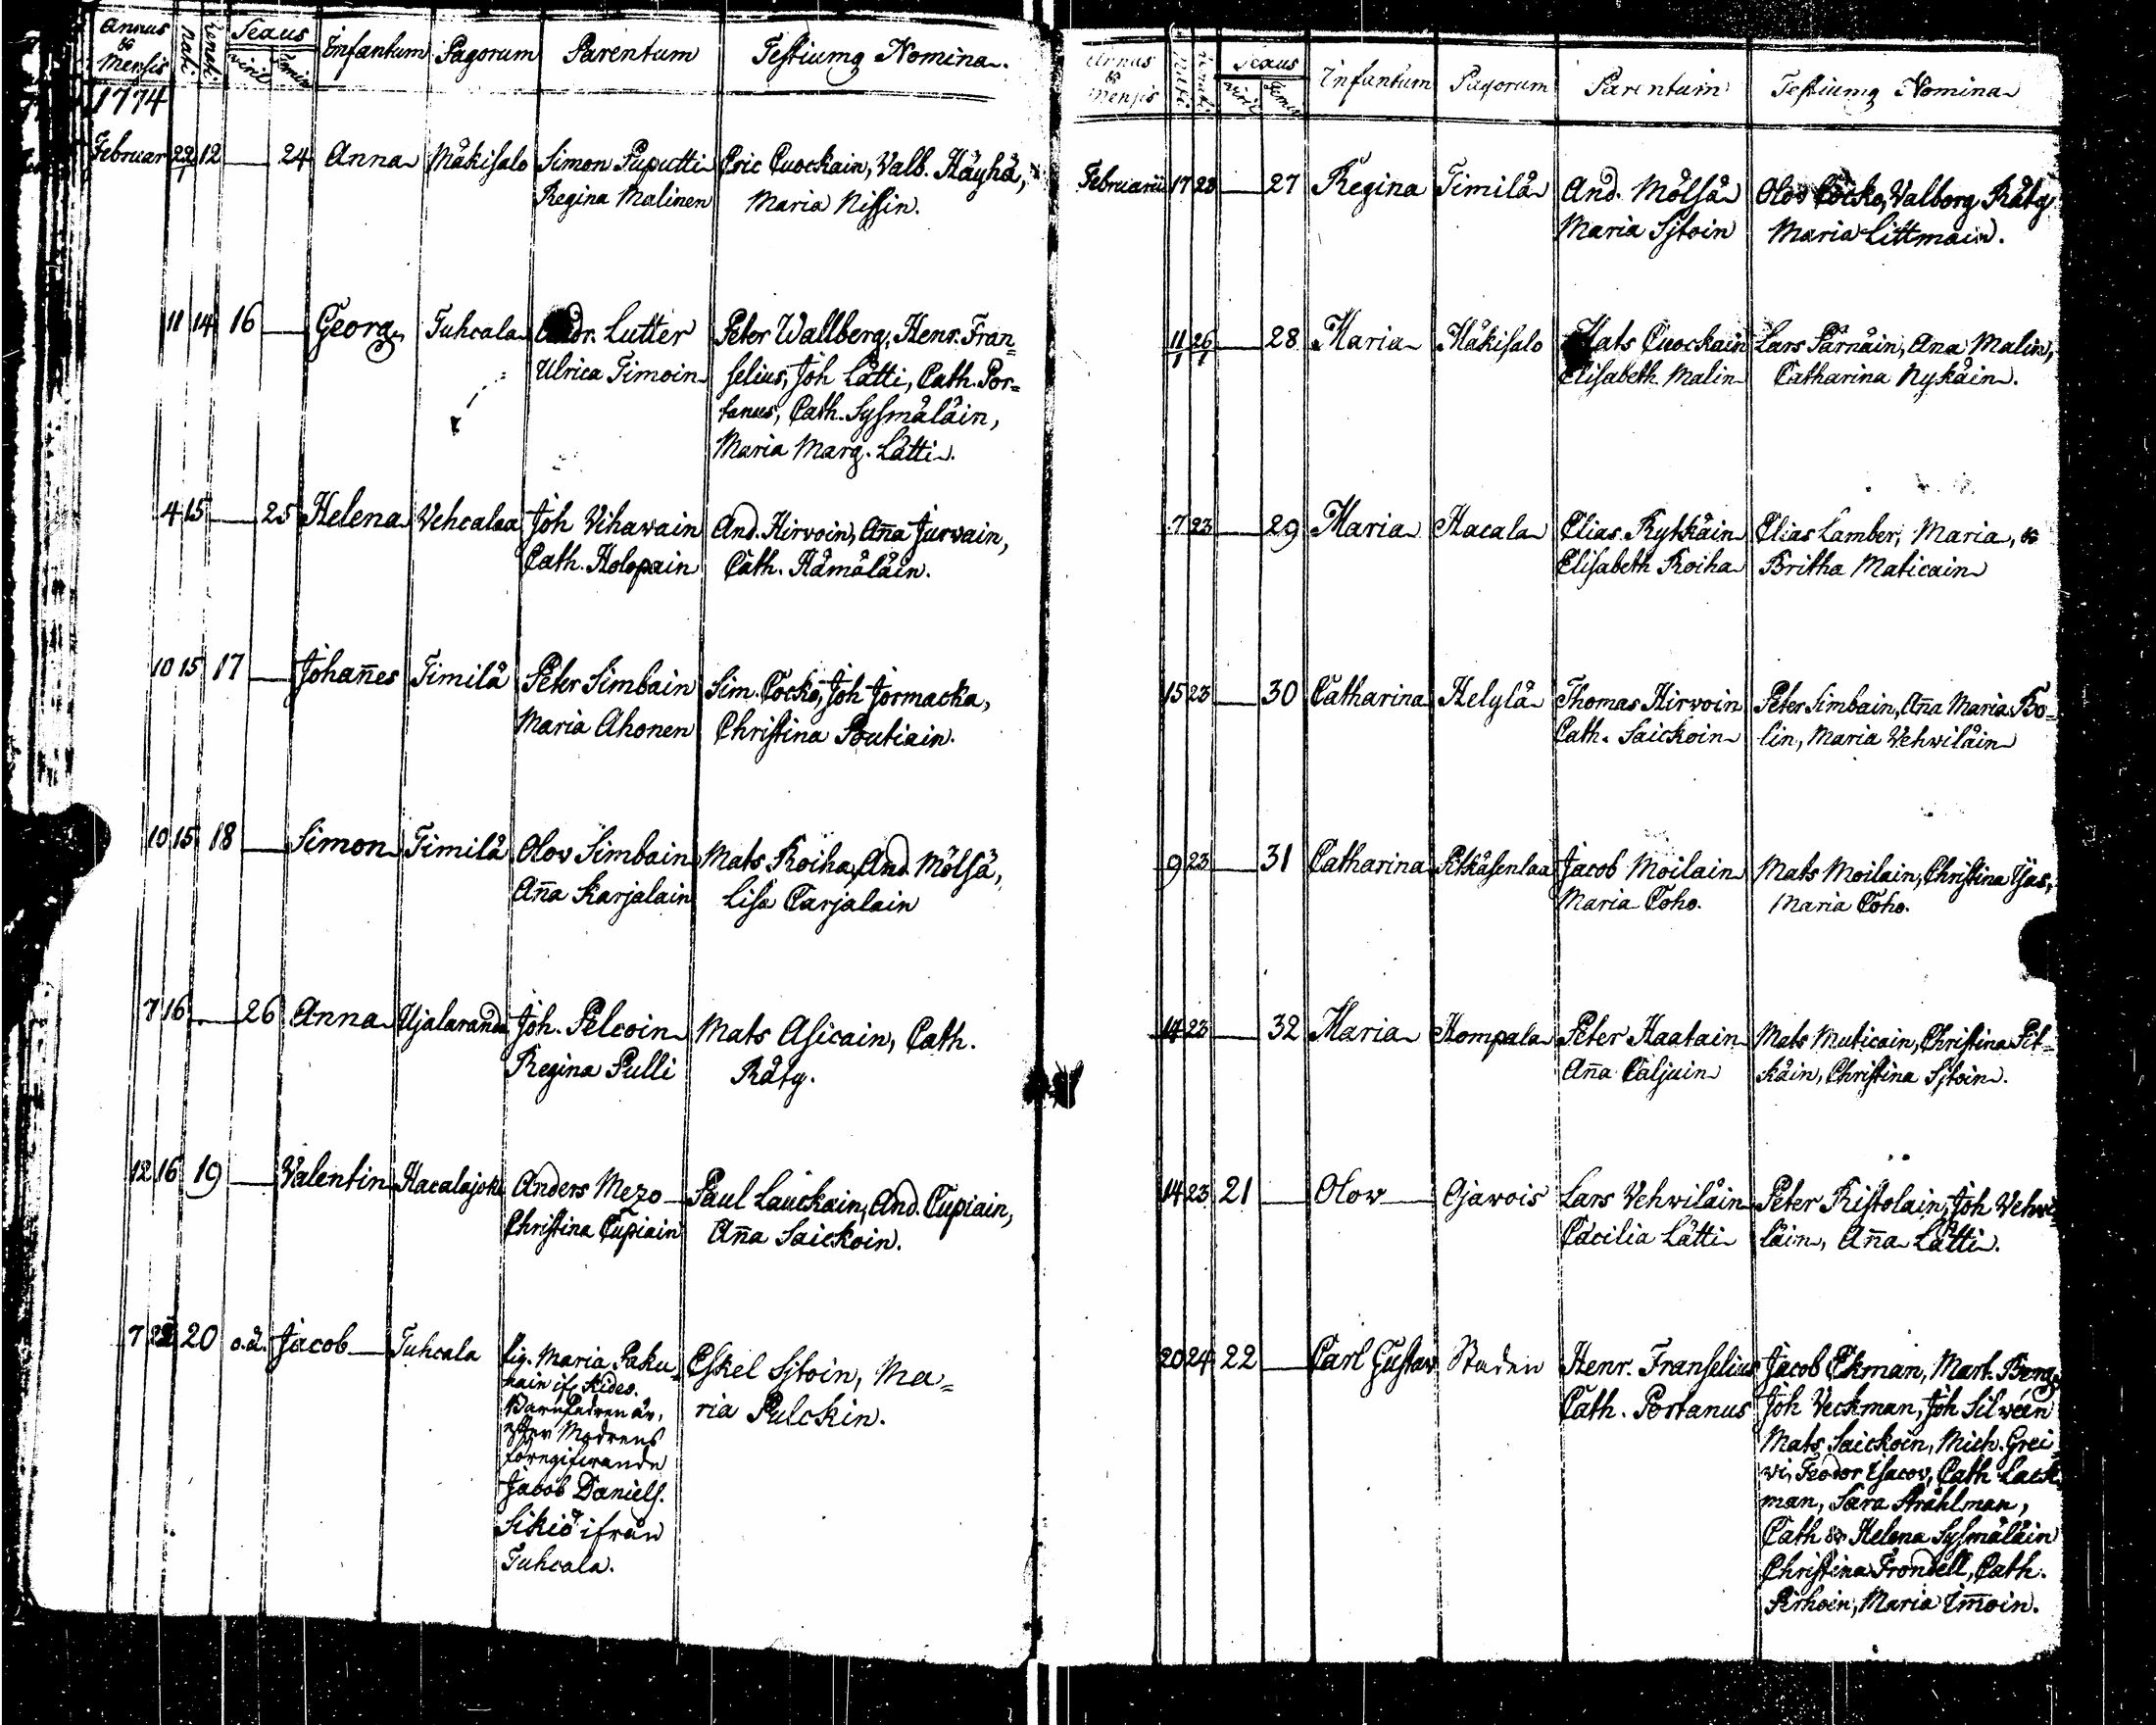 Annus & Mensis Nati Renati Sexus viril femin Infantum Pagorum Parentum Testiumq Nomina.
1774
Februar 22/1 12 — 24 Anna Mäkisalo Simon Puputti Eric Cuockain, Valb. Häyhä,
Regina Malinen Maria Nissin.
11 14 16 — Georg Tuhcala Andr. Lutter Peter Wallberg, Henr. Fran=
Ulrica Timoin selius, Joh Lätti, Cath. Por=
tanus, Cath. Sysmäläin,
Maria Marg. Lätti.
4 15 — 25 Helena Vehcalaa Joh Vihawain And. Hirvoin, Ana Jurvain,
Cath. Holopain Cath. Hämäläin.
10 15 17 — Johañes Timilä Peter Simbain Sim. Cocko, Joh Jormacka,
Maria Ahonen Christina Poutiain.
10 15 18 — Simon Timilä Olov Simbain Mats Roiha, And. Mölsä,
Aña Karjalain Lisa Carjalain
7 16 — 26 Anna Ujalaranda Joh. Pelcoin Mats Asicain, Cath.
Regina Pulli Räty.
12 16 19 — Valentin Hacalajoki Anders Mezo Paul Lauckain, And. Cupiain,
Christina Cupiain Aña Saickoin.
7 22 20 o.ä. Jacob Tuhcala Pig. Maria Paku= Eskel Sjtoin, Ma=
nain if. Kides. ria Pulckin.
Barnfadren är,
efter Modrens
föregifwande
Jacob Daniels.
Sikiö ifrån
Tuhcala.
Annus & Mensis Nati Renati Sexus viril femin Infantum Pagorum Parentum Testiumq Nomina
Februarii 17 23 — 27 Regina Timilä And. Mölsä Olov Cocko, Valborg Räty
Maria Sjtoin Maria Littmain.
11/1 26/1 — 28 Maria Mäkisalo Mats Cuockain Lars Pärnäin, Ana Malin,
Elisabeth Malin Catharina Nykäin.
7 23 — 29 Maria Hacala Elias Rytkäin Elias Lamber, Maria, &
Elisabeth Roiha Britha Maticain
15 23 — 30 Catharina Helylä Thomas Hirvoin Peter Simbain, Aña Maria Bo=
Cath. Saickoin lin, Maria Vehwiläin
9 23 — 31 Catharina Pitkäsenlaa Jacob Moilain Mats Moilain, Christina Ijäs,
Maria Coho. Maria Coho.
14 23 — 32 Maria Hompala Peter Haatain Mats Muticain, Christina Pit=
Aña Caljuin käin, Christina Sjtoin.
14 23 21 — Olov Ojavois Lars Vehwiläin Peter Ristolain, Joh Vehwi=
Cäcilia Lätti läin, Aña Lätti.
20 24 22 — Carl Gustav Staden Henr. Franselius Jacob Ekman, Mart. Berg,
Cath. Portanus Joh Veckman, Joh Silvéen
Mats Saickoin, Mich. Grei=
wi, Feodor Isacov, Cath Lack
man, Sara Strählman,
Cath & Helena Sysmäläin
Christina Frondell, Cath.
Pirhoin, Maria Im̃oin.